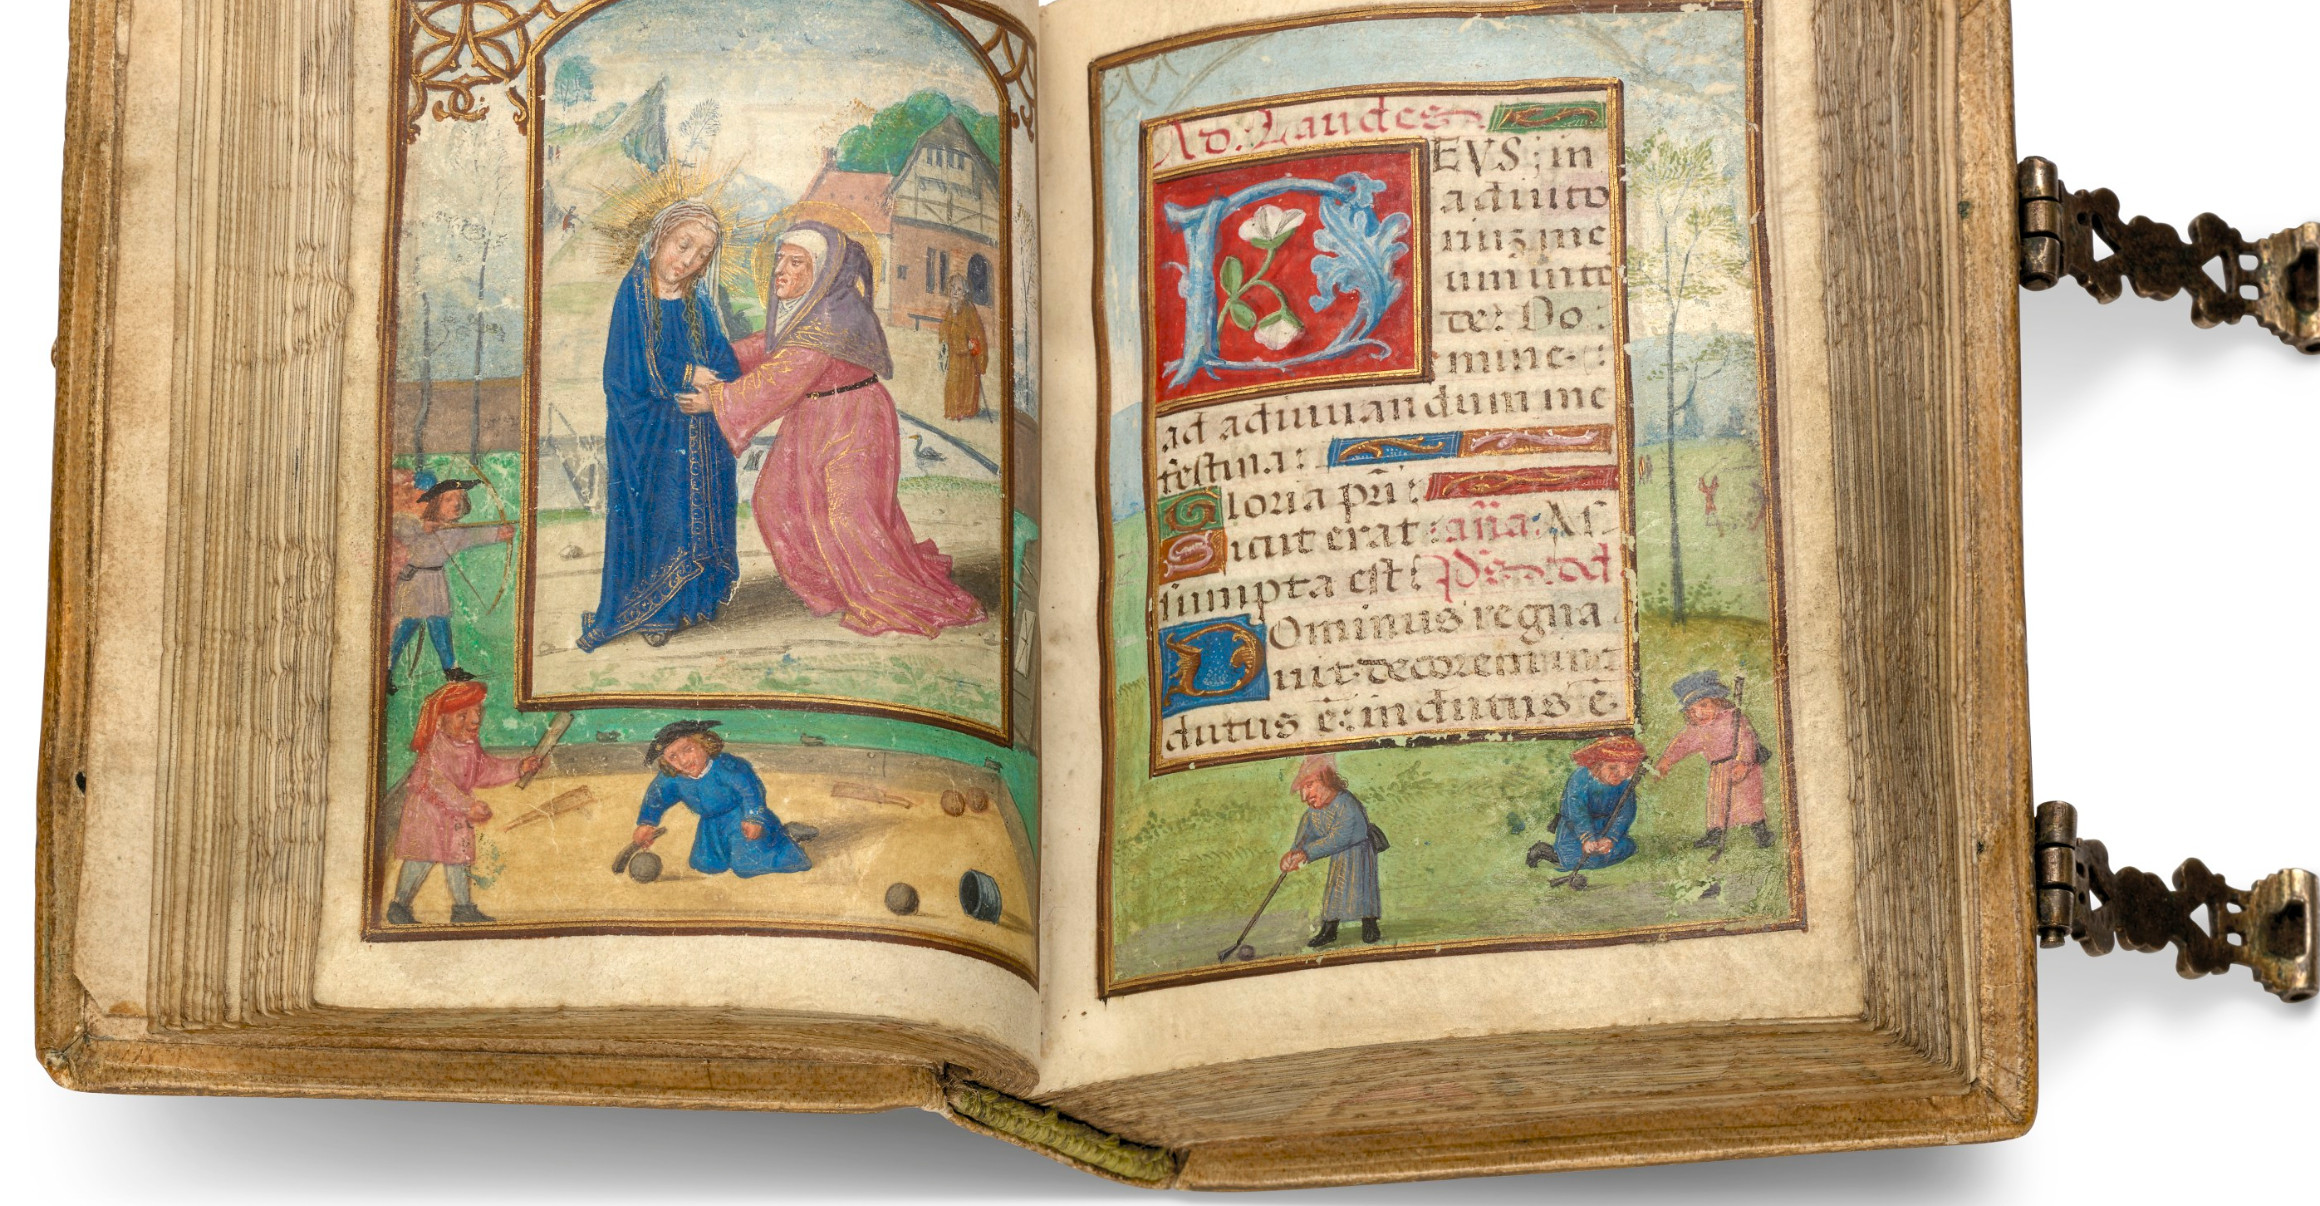 Ad. Laudes.
DEVS: in
adiuto
riuz me
um inte
de: Do:
mine:
ad adiuuandum me
festina:
Gloria pri:
Sicut erat: aña: As
sumpta est: Ps dd
DOminus regna
uit decorem in
dutus ē: indutus ē